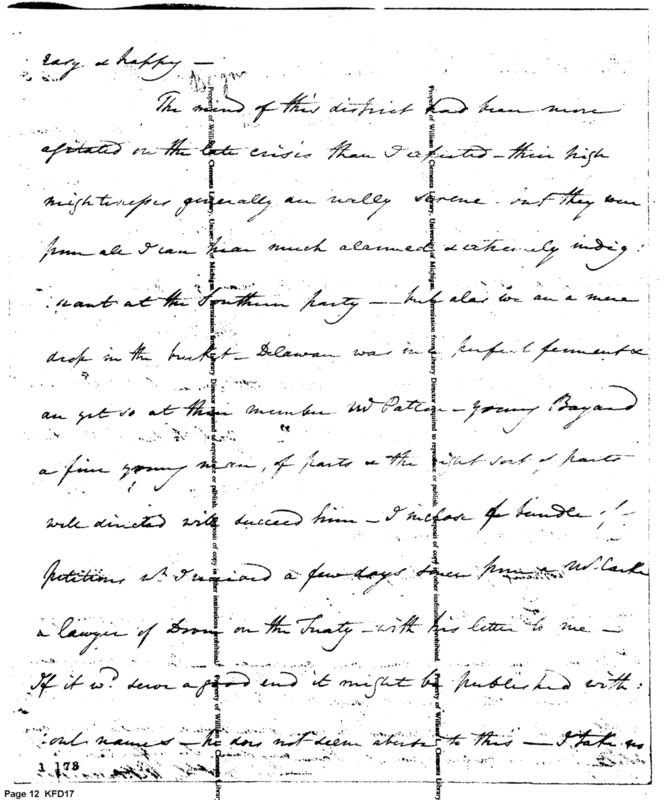 easy & happy —
The mind of this district had been more
agitated on the late crisis than I expected — their high
mightinesses generally are really serene. but they were
from all I can hear much alarmed & extremely indig:
:nant at the Southern party — but alas we are a mere
drop in the bucket — Delaware was in a perfect ferment &
are yet so at their member Mr Patton — young Bayard
a fine young man, of parts & the right sort of parts
well directed will succeed him — I inclose a bundle of
Petitions wh. I received a few days since from a Mr.
a lawyer of Dover on the Treaty — with his letter to me —
If it wd. serve a good end it might be published with:
:out names — he does not seem averse to this — I take no
1 178
Property of William L. Clements Library, University of Michigan. Permission from Library Director required to reproduce or publish. Deposit of copy in other institutions prohibited.
Property of William L. Clements Library, University of Michigan. Permission from Library Director required to reproduce or publish. Deposit of copy in other institutions prohibited.
Page 12 KFD17